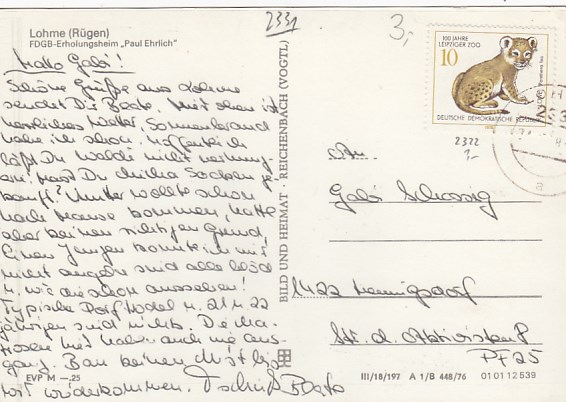 Lohme (Rügen)
FDGB-Erholungsheim „Paul Ehrlich"
Hallo Gabi!
Schöne Grüße aus Lohme
sendet Dir Beate. Wir haben
herrliches Wetter, Sonnenbrand
habe ich schon. Hoffentlich
läßt Du Waldi nicht verhung-
ern. Hast Du Socken ge-
kauft? Mutter wollte schon
nach Hause kommen, hatte
aber keinen richtigen Grund.
Einen Jungen konnte ich mir
nicht angeln sind alle blöd
u. wie die schon aussehen!
Typische Dorftrottel u. 21 u. 22
jährigen sind nichts. Die Ma-
trosen haben auch nie aus-
gang. Bau keinen Mist bis
wir wiederkommen. Tschüß Beate
EVP M —,25
BILD UND HEIMAT · REICHENBACH (VOGTL)
2331
3,-
100 JAHRE
LEIPZIGER ZOO
10
DEUTSCHE DEMOKRATISCHE REPUBLIK
2322
An
Gabi
1422 Hennigsdorf
Str. d. Aktivisten 8
PF 25
III/18/197 A 1/B 448/76 01 01 12 539